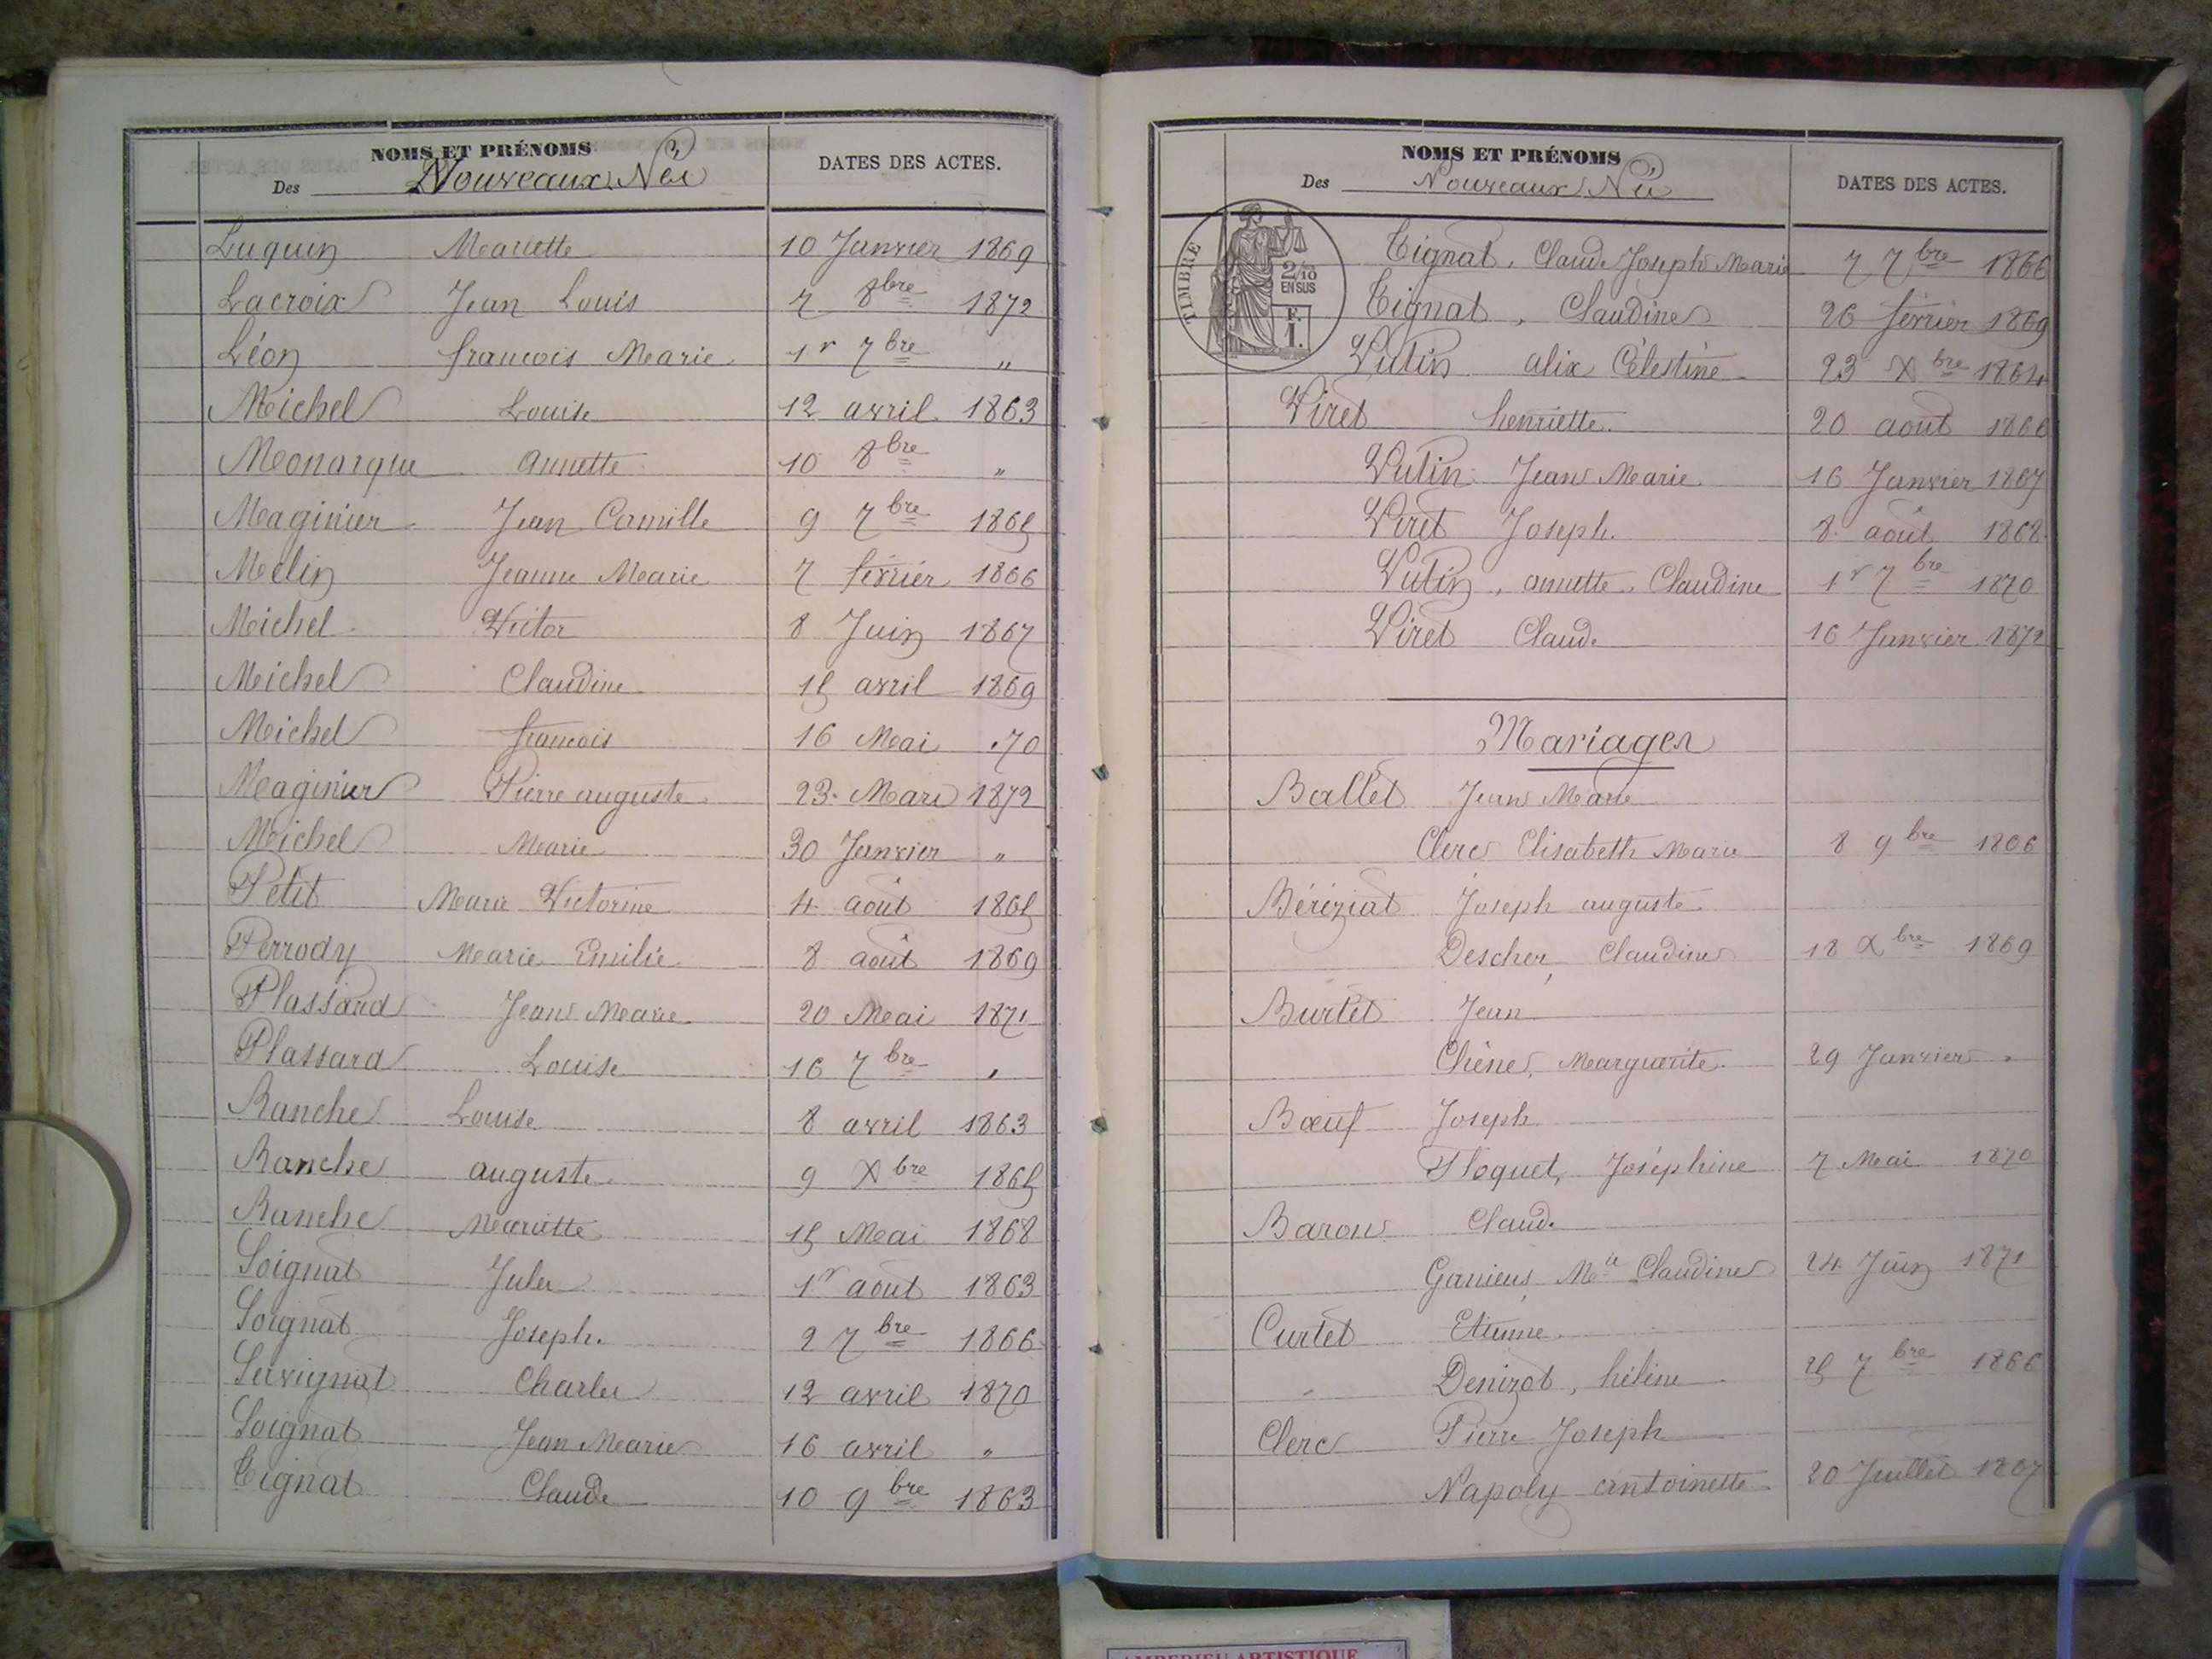 NOMS ET PRÉNOMS
Des Nouveaux Nés
DATES DES ACTES.
Luquin Mariette 10 Janvier 1869
Lacroix Jean Louis 7 8bre 1872
Léon francois Marie 1r 7bre "
Michel Louise 12 avril 1863
Monarque annette 10 8bre "
Maginier Jean Camille 9 7bre 1865
Melin Jeanne Marie 7 février 1866
Michel Victor 8 Juin 1867
Michel Claudine 15 avril 1869
Michel francois 16 Mai .70
Maginier Pierre auguste 23. Mars 1872
Michel Marie 30 Janvier "
Petit Marie Victorine 4 août 1865
Perrody Marie Emilie 8 août 1869
Plassard Jean Marie 20 Mai 1871
Plassard Louise 16 7bre "
Ranche Louise 8 avril 1863
Ranche auguste 9 Xbre 1865
Ranche Mariette 15 Mai 1868
Soignat Jules 1r août 1863
Soignat Joseph. 2 7bre 1866
Servignat Charles 12 avril 1870
Soignat Jean Marie 16 avril "
Tignat Claude 10 9bre 1863
NOMS ET PRÉNOMS
Des Nouveaux Nés
DATES DES ACTES.
TIMBRE
2/10
EN SUS
F.
1.
Tignat, Claude Joseph Marie 7 7bre 1866
Tignat, Claudine 26 février 1869
Vutin alix Célestine 23 Xbre 1864
Viret henriette. 20 août 1866
Vutin Jean Marie 16 Janvier 1867
Viret Joseph. 8 août 1868
Vutin, annette, Claudine 1r 7bre 1870
Viret Claude 16 Janvier 1872
Mariages
Ballet Jean Marie
Clerc Elisabeth Marie 8 9bre 1866
Béréziat Joseph auguste
Descher, Claudine 18 Xbre 1869
Burtet Jean
Chêne, Marguerite. 29 Janvier "
Bœuf Joseph
Floquet, Joséphine 7 Mai 1870
Baron Claude
Ganieus, Mie Claudine 24 Juin 1871
Curtet Etienne
Denizot, héline 25 7bre 1866
Clerc Pierre Joseph
Napoly antoinette 20 Juillet 1867
AMPERIEU ARTISTIQUE